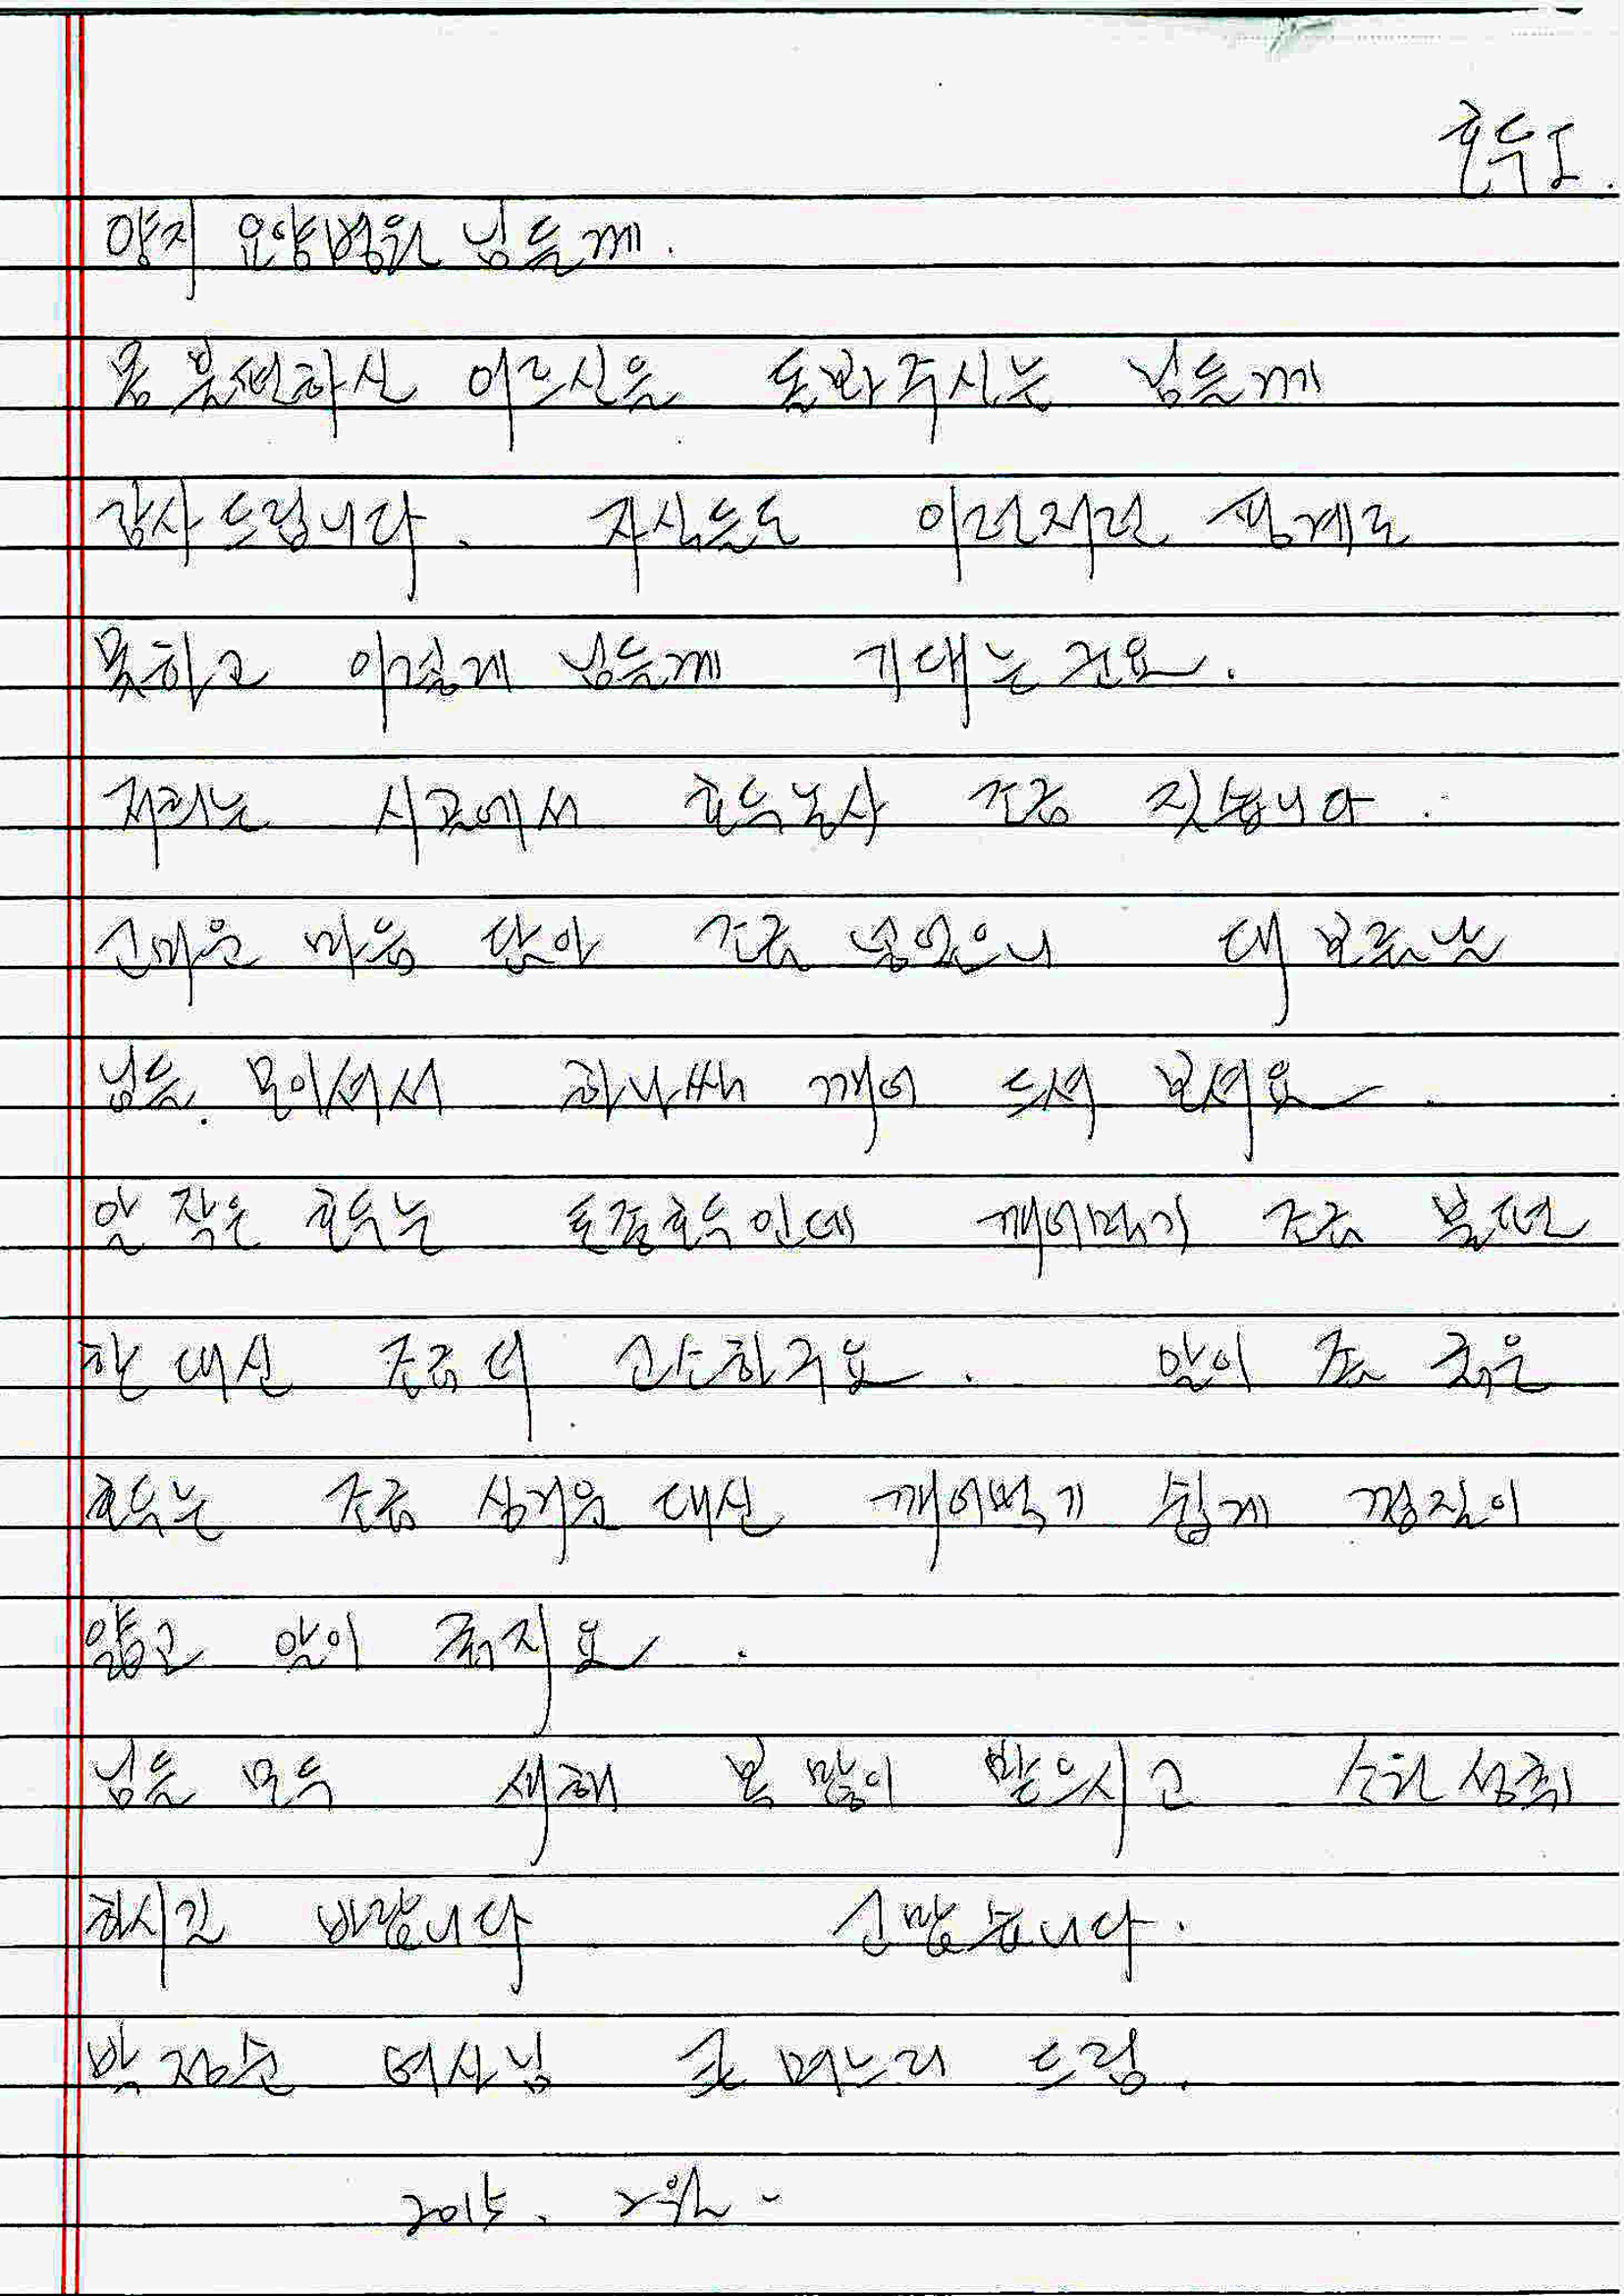 호두요.
양지 요양병원 님들께.
몸 불편하신 어르신을 돌봐주시는 님들께
감사드립니다. 자식들도 이런저런 핑계로
못하고 이렇게 님들께 기대는건요.
저희는 시골에서 호두농사 조금 짓습니다.
고마운 마음 담아 조금 넣었으니 대보름날
님들 모이셔서 하나씩 깨어 드셔 보셔요.
알 작은 호두는 토종호두인데 깨어먹기 조금 불편
한 대신 조금 더 고소하구요. 알이 좀 굵은
호두는 조금 싱거운 대신 깨어먹기 쉽게 껍질이
얇고 알이 굵지요.
님들 모두 새해 복 많이 받으시고 소원성취
하시길 바랍니다 고맙습니다.
박정순 여사님 큰며느리 드림.
2015. 2월-